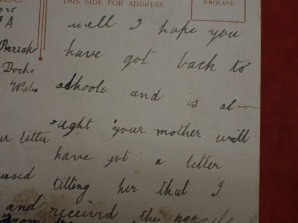 THIS SIDE FOR ADDRESS
ENGLAND
A
Barrack
Docks
Wales
well I hope you
have got back to
schoole and is al-
ought your mother will
have got a letter
tilling her that I
and received the